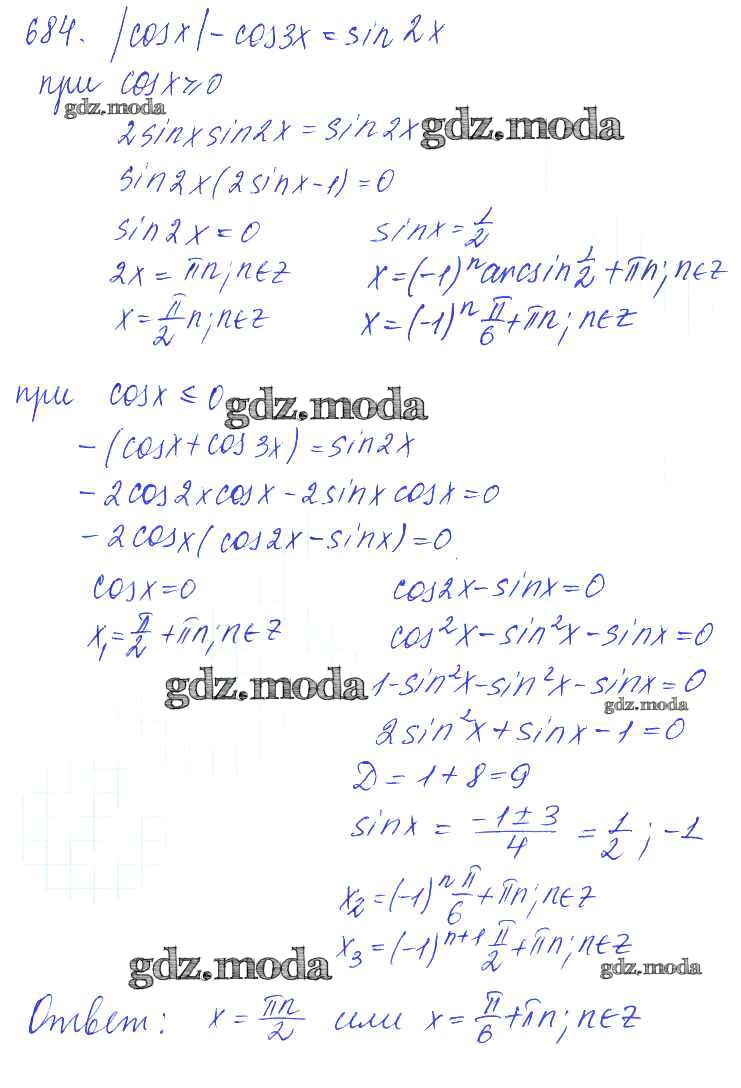 684. |cosx| - cos3x = sin2x
при cosx ≥ 0
gdz.moda
2sinx sin2x = sin2x gdz.moda
sin2x(2sinx-1) = 0
sin2x = 0 sinx = 1/2
2x = πn; n∈Z x = (-1)^n arcsin 1/2 + πn; n∈Z
x = π/2 n; n∈Z x = (-1)^n π/6 + πn; n∈Z
при cosx ≤ 0 gdz.moda
-(cosx + cos3x) = sin2x
-2cos2x cosx - 2sinx cosx = 0
-2cosx(cos2x - sinx) = 0
cosx = 0 cos2x - sinx = 0
x₁ = π/2 + πn; n∈Z cos²x - sin²x - sinx = 0
gdz.moda 1 - sin²x - sin²x - sinx = 0
gdz.moda
2sin²x + sinx - 1 = 0
D = 1 + 8 = 9
sinx = (-1 ± 3)/4 = 1/2; -1
x₂ = (-1)^n π/6 + πn; n∈Z
x₃ = (-1)^(n+1) π/2 + πn; n∈Z
gdz.moda gdz.moda
Ответ: x = πn/2 или x = π/6 + πn; n∈Z